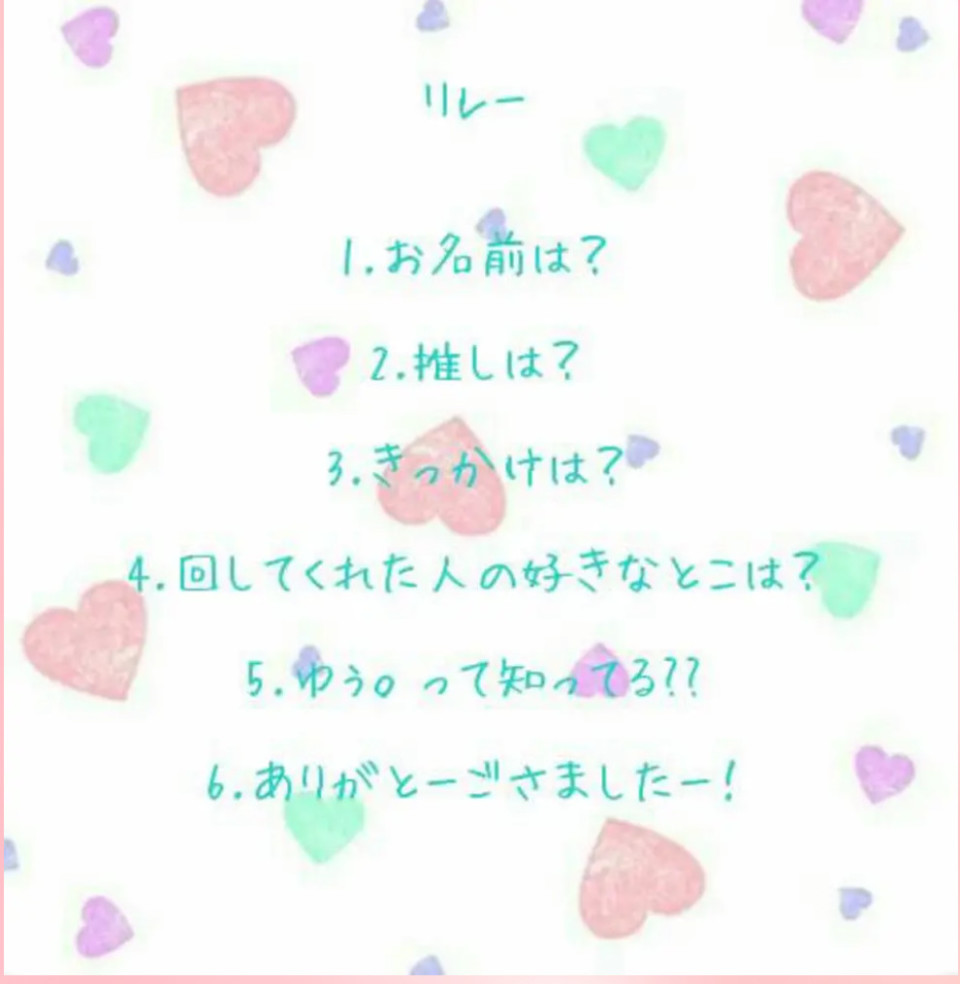 リレー
1.お名前は?
2.推しは?
3.きっかけは?
4.回してくれた人の好きなとこは?
5.ゆう。って知ってる??
6.ありがとーごさましたー!